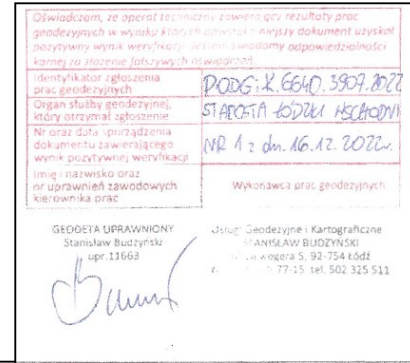 Oświadczam, ze operat techniczny zawierający rezultaty prac
geodezyjnych w wyniku których powstał niniejszy dokument uzyskał
pozytywny wynik weryfikacji. Jestem świadomy odpowiedzialności
karnej za złożenie fałszywych oświadczeń.
Identyfikator zgłoszenia
prac geodezyjnych
PODGiK.6640.3907.2022
Organ służby geodezyjnej,
który otrzymał zgłoszenie
STAROSTA ŁÓDZKI WSCHODNI
Nr oraz data sporządzenia
dokumentu zawierającego
wynik pozytywnej weryfikacji
NR 1 z dn. 16.12.2022r.
Imię i nazwisko oraz
nr uprawnień zawodowych
kierownika prac
Wykonawca prac geodezyjnych
GEODETA UPRAWNIONY
Stanisław Budzyński
upr.11663
Usługi Geodezyjne i Kartograficzne
STANISŁAW BUDZYŃSKI
5, 92-754 Łódź
77-15, tel. 502 325 511